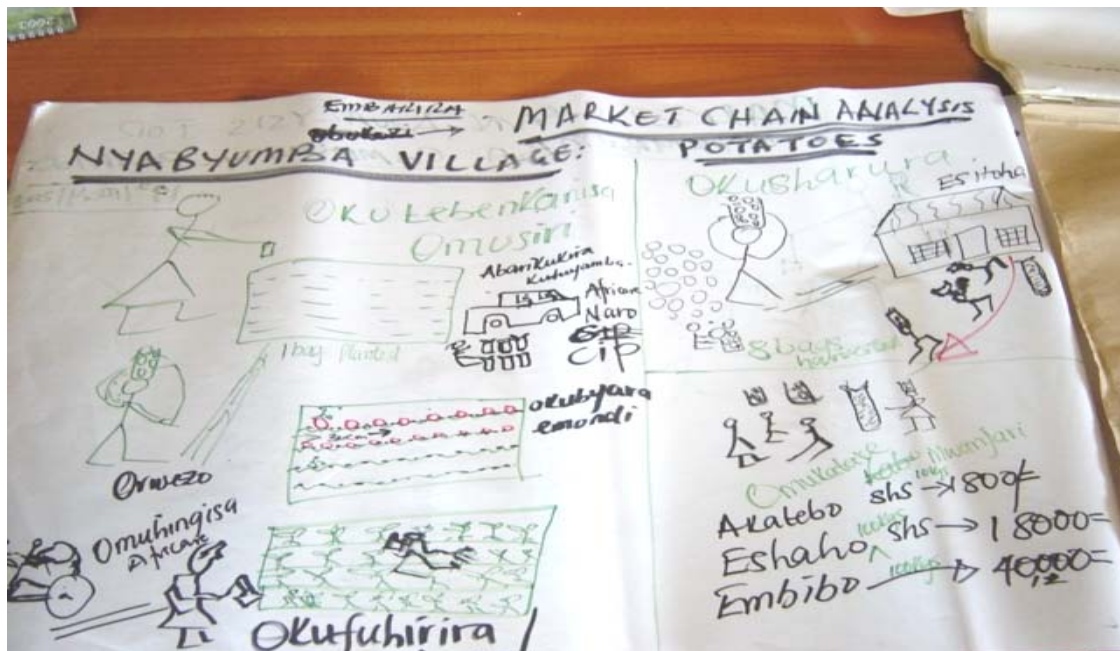 EMBALILA
MARKET CHAIN ANALYSIS
NYABYUMBA VILLAGE: POTATOES
② Oku tebenkanisa
Omusiri
Abarikukira
Kutuyamba.
Africare
Naro
CIP
CIP
1 bag planted
Orwezo
okubyara
emondi
Omuhingisa
Africare
Okufuhirira
Okusharura
Esitoha
8 bags
harvested
Omukatare
Mwanjari
Akatebo shs → 1800/=
Eshaho 100kgs shs → 18000=
Embibo 100kgs → 40,000=